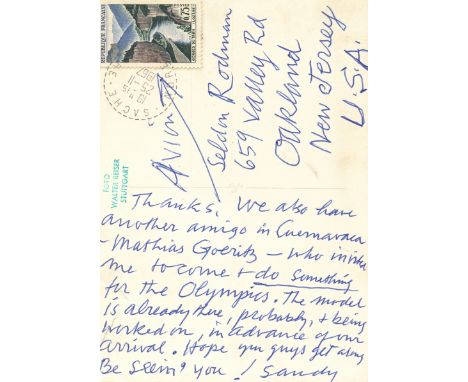 REPUBLIQUE FRANÇAISE
0,75
SACHE
19 H 15
25 - 11
1967
Avion
Seldon Rodman
659 Valley Rd
Oakland
New Jersey
U.S.A.
FOTO
WALTER REISER
STUTTGART
Thanks. We also have
another amigo in Cuernavaca
- Mathias Goeritz - who invited
me to come & do something
for the Olympics. The model
is already there, probably, & being
worked on, in advance of our
arrival. Hope you guys get along
Be seein' you! Sandy